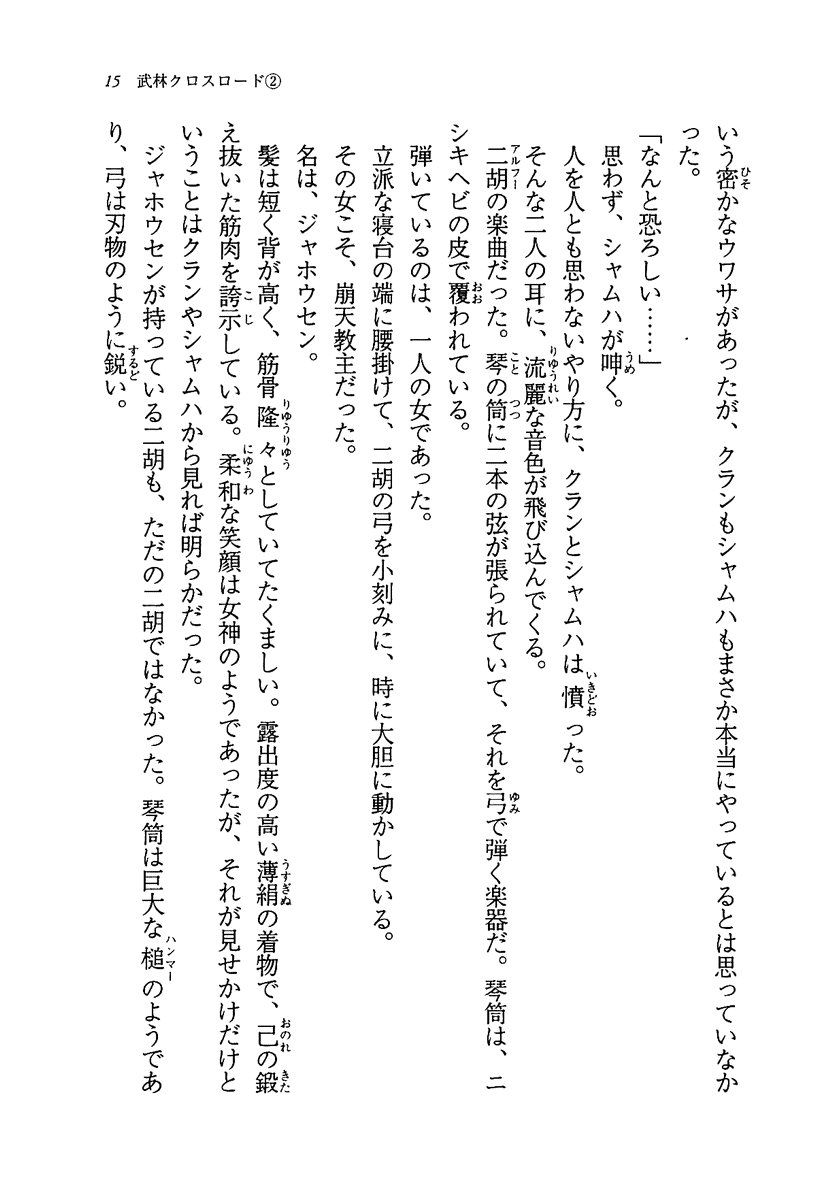 15 武林クロスロード②
いう密かなウワサがあったが、クランもシャムハもまさか本当にやっているとは思っていなか
った。
「なんと恐ろしい……」
思わず、シャムハが呻く。
人を人とも思わないやり方に、クランとシャムハは憤った。
そんな二人の耳に、流麗な音色が飛び込んでくる。
二胡の楽曲だった。琴の筒に二本の弦が張られていて、それを弓で弾く楽器だ。琴筒は、ニ
シキヘビの皮で覆われている。
弾いているのは、一人の女であった。
立派な寝台の端に腰掛けて、二胡の弓を小刻みに、時に大胆に動かしている。
その女こそ、崩天教主だった。
名は、ジャホウセン。
髪は短く背が高く、筋骨隆々としていてたくましい。露出度の高い薄絹の着物で、己の鍛
え抜いた筋肉を誇示している。柔和な笑顔は女神のようであったが、それが見せかけだけと
いうことはクランやシャムハから見れば明らかだった。
ジャホウセンが持っている二胡も、ただの二胡ではなかった。琴筒は巨大な槌のようであ
り、弓は刃物のように鋭い。